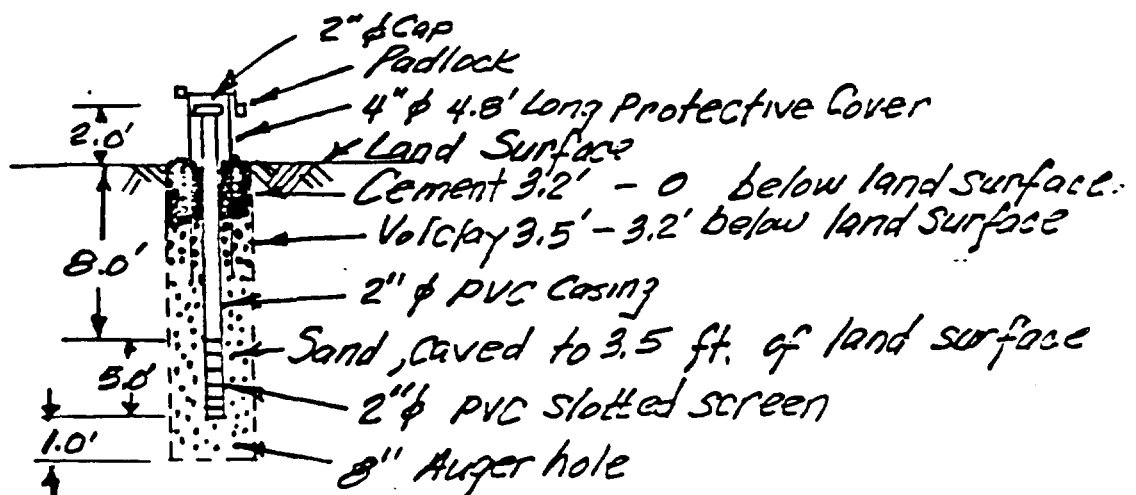 2" φ Cap
Padlock
2.0'
4" φ 4.8' Long Protective Cover
Land Surface
Cement 3.2' - 0 below land surface.
Volclay 3.5' - 3.2' below land surface
8.0'
2" φ PVC Casing
Sand, caved to 3.5 ft. of land surface
5.0'
2" φ PVC slotted screen
1.0'
8" Auger hole